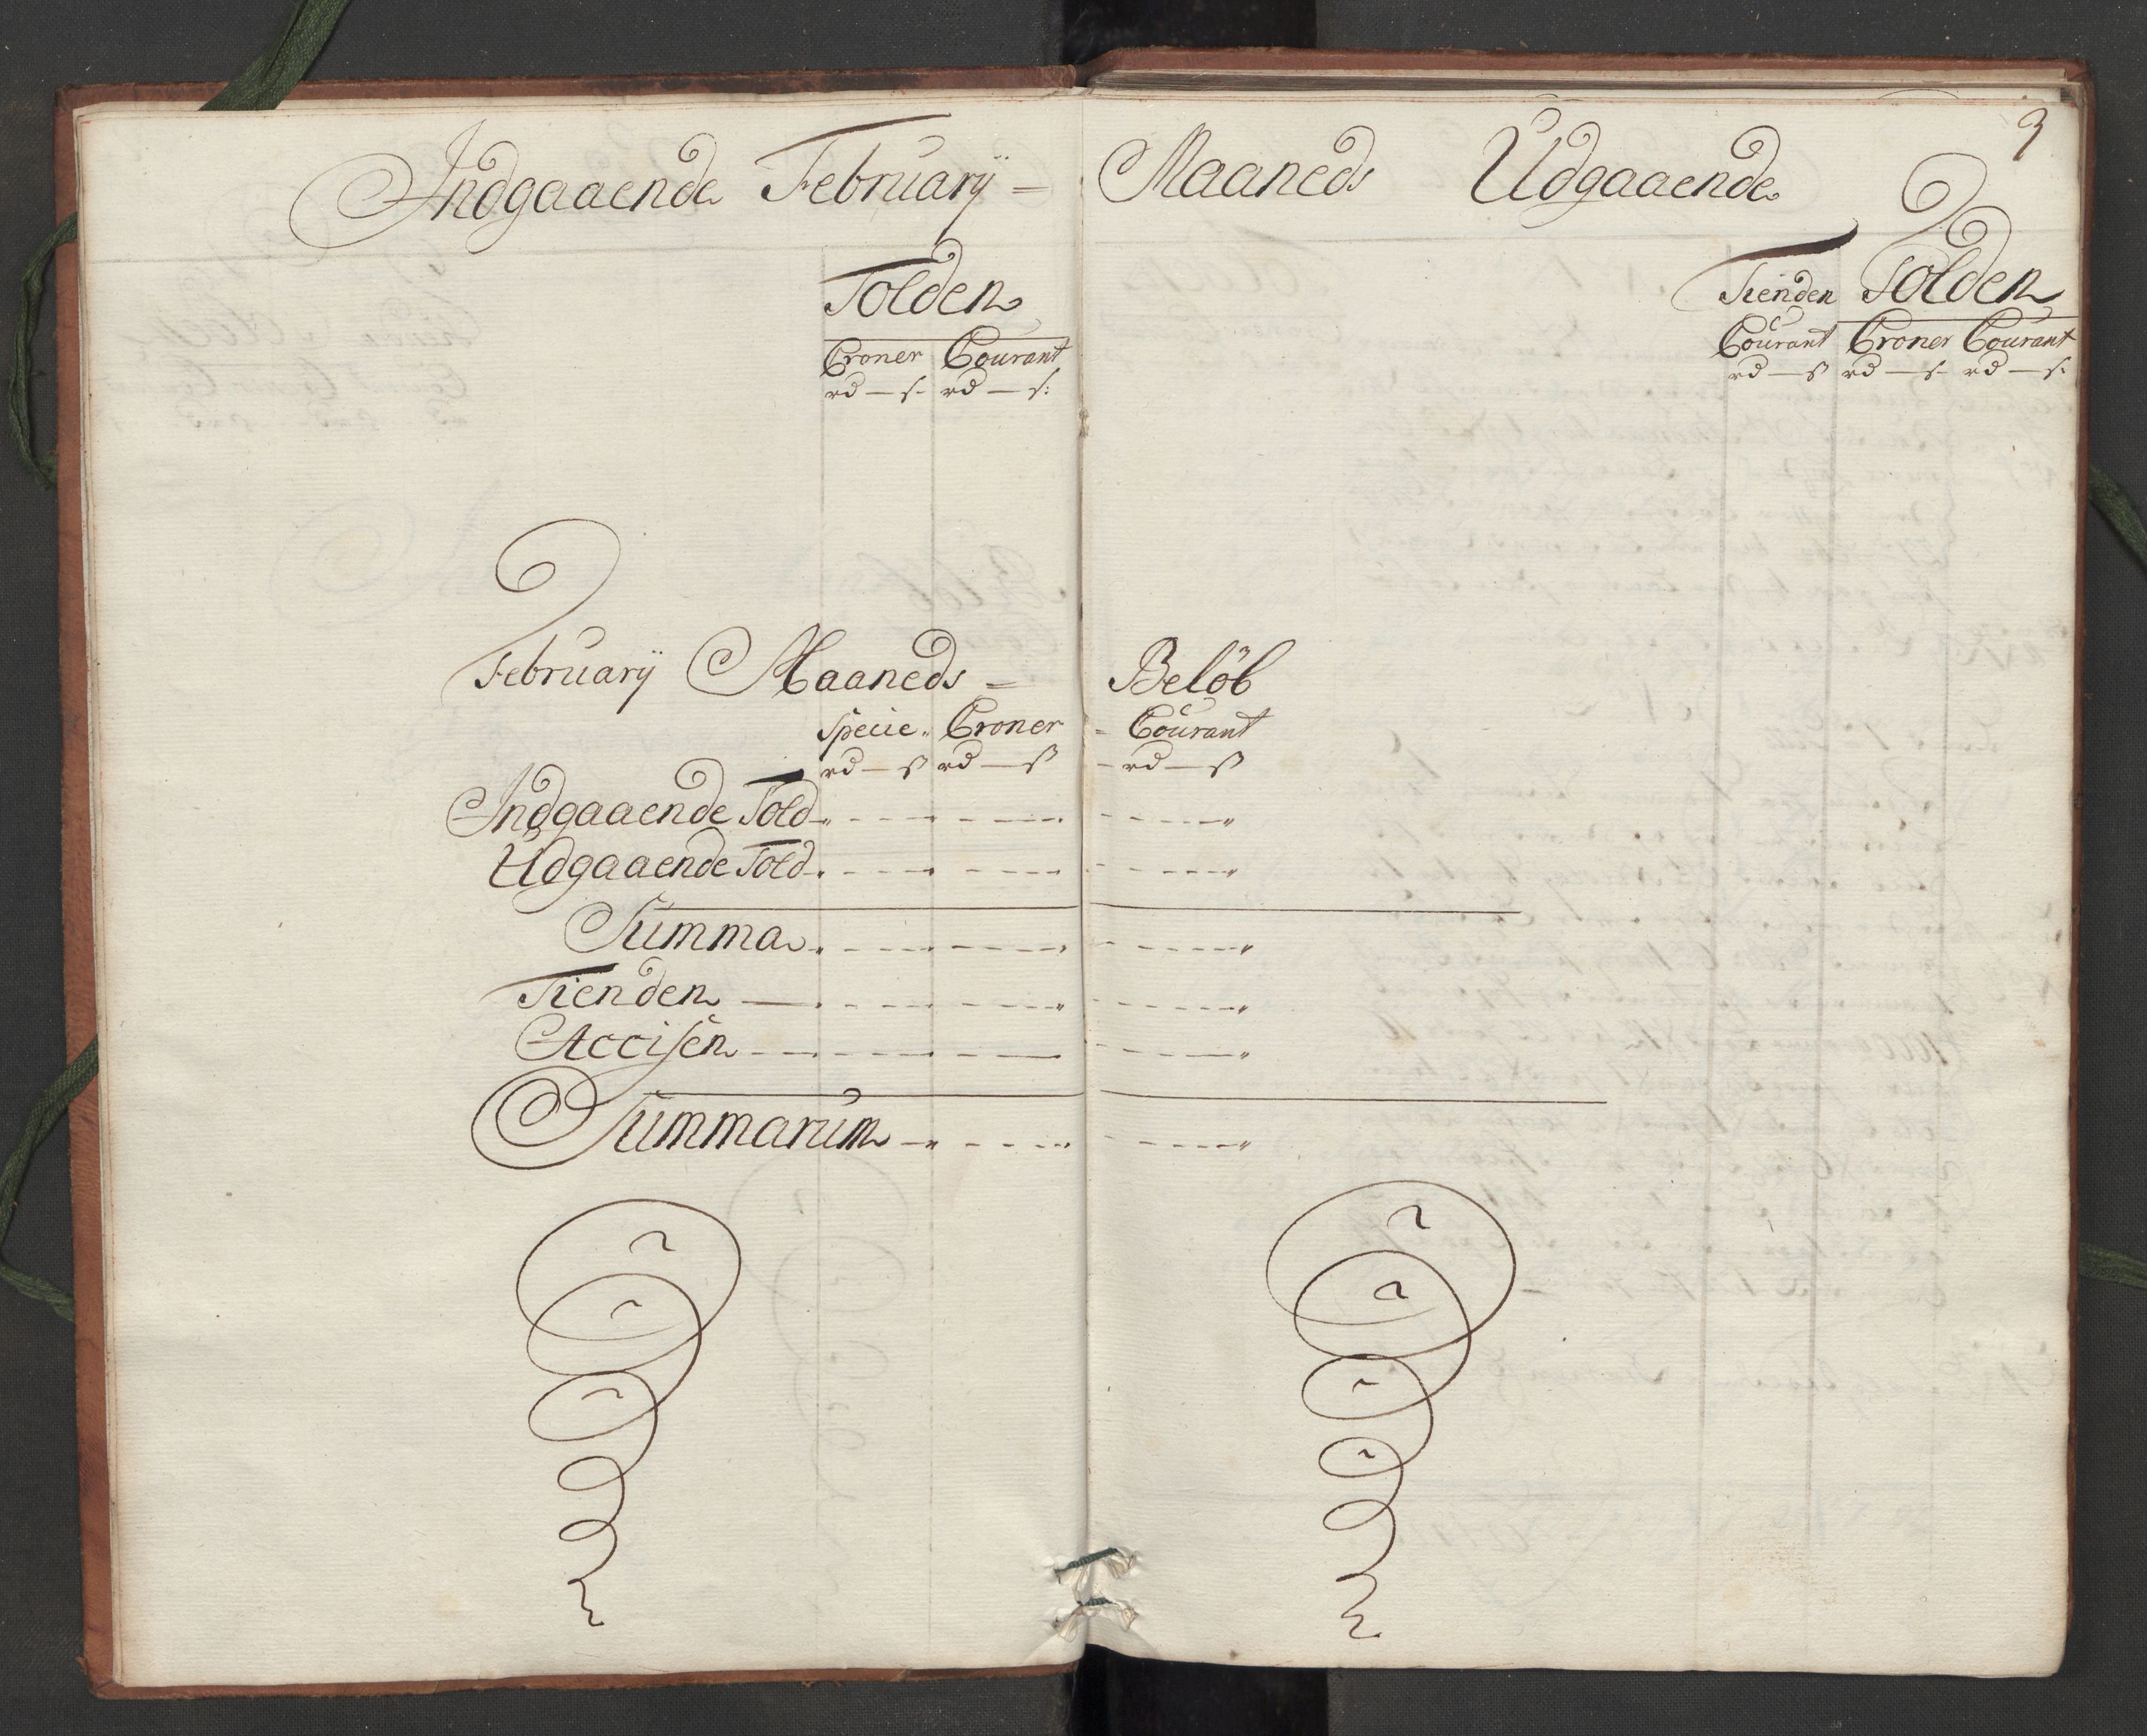 Indgaaende Februarÿ =
Tolden
Croner Courant
rd — s. rd — s:
Februarÿ Maaneds =
Specie.. Croner
rd — ß rd — ß
Indgaaende Told
Udgaaende Told
Summa
Tienden
Accisen
Summarum
3
Maaneds Udgaaende
Tienden Tolden
Courant Croner Courant
rd — ß rd — s rd — s:
Belöb
= Courant
- rd — ß